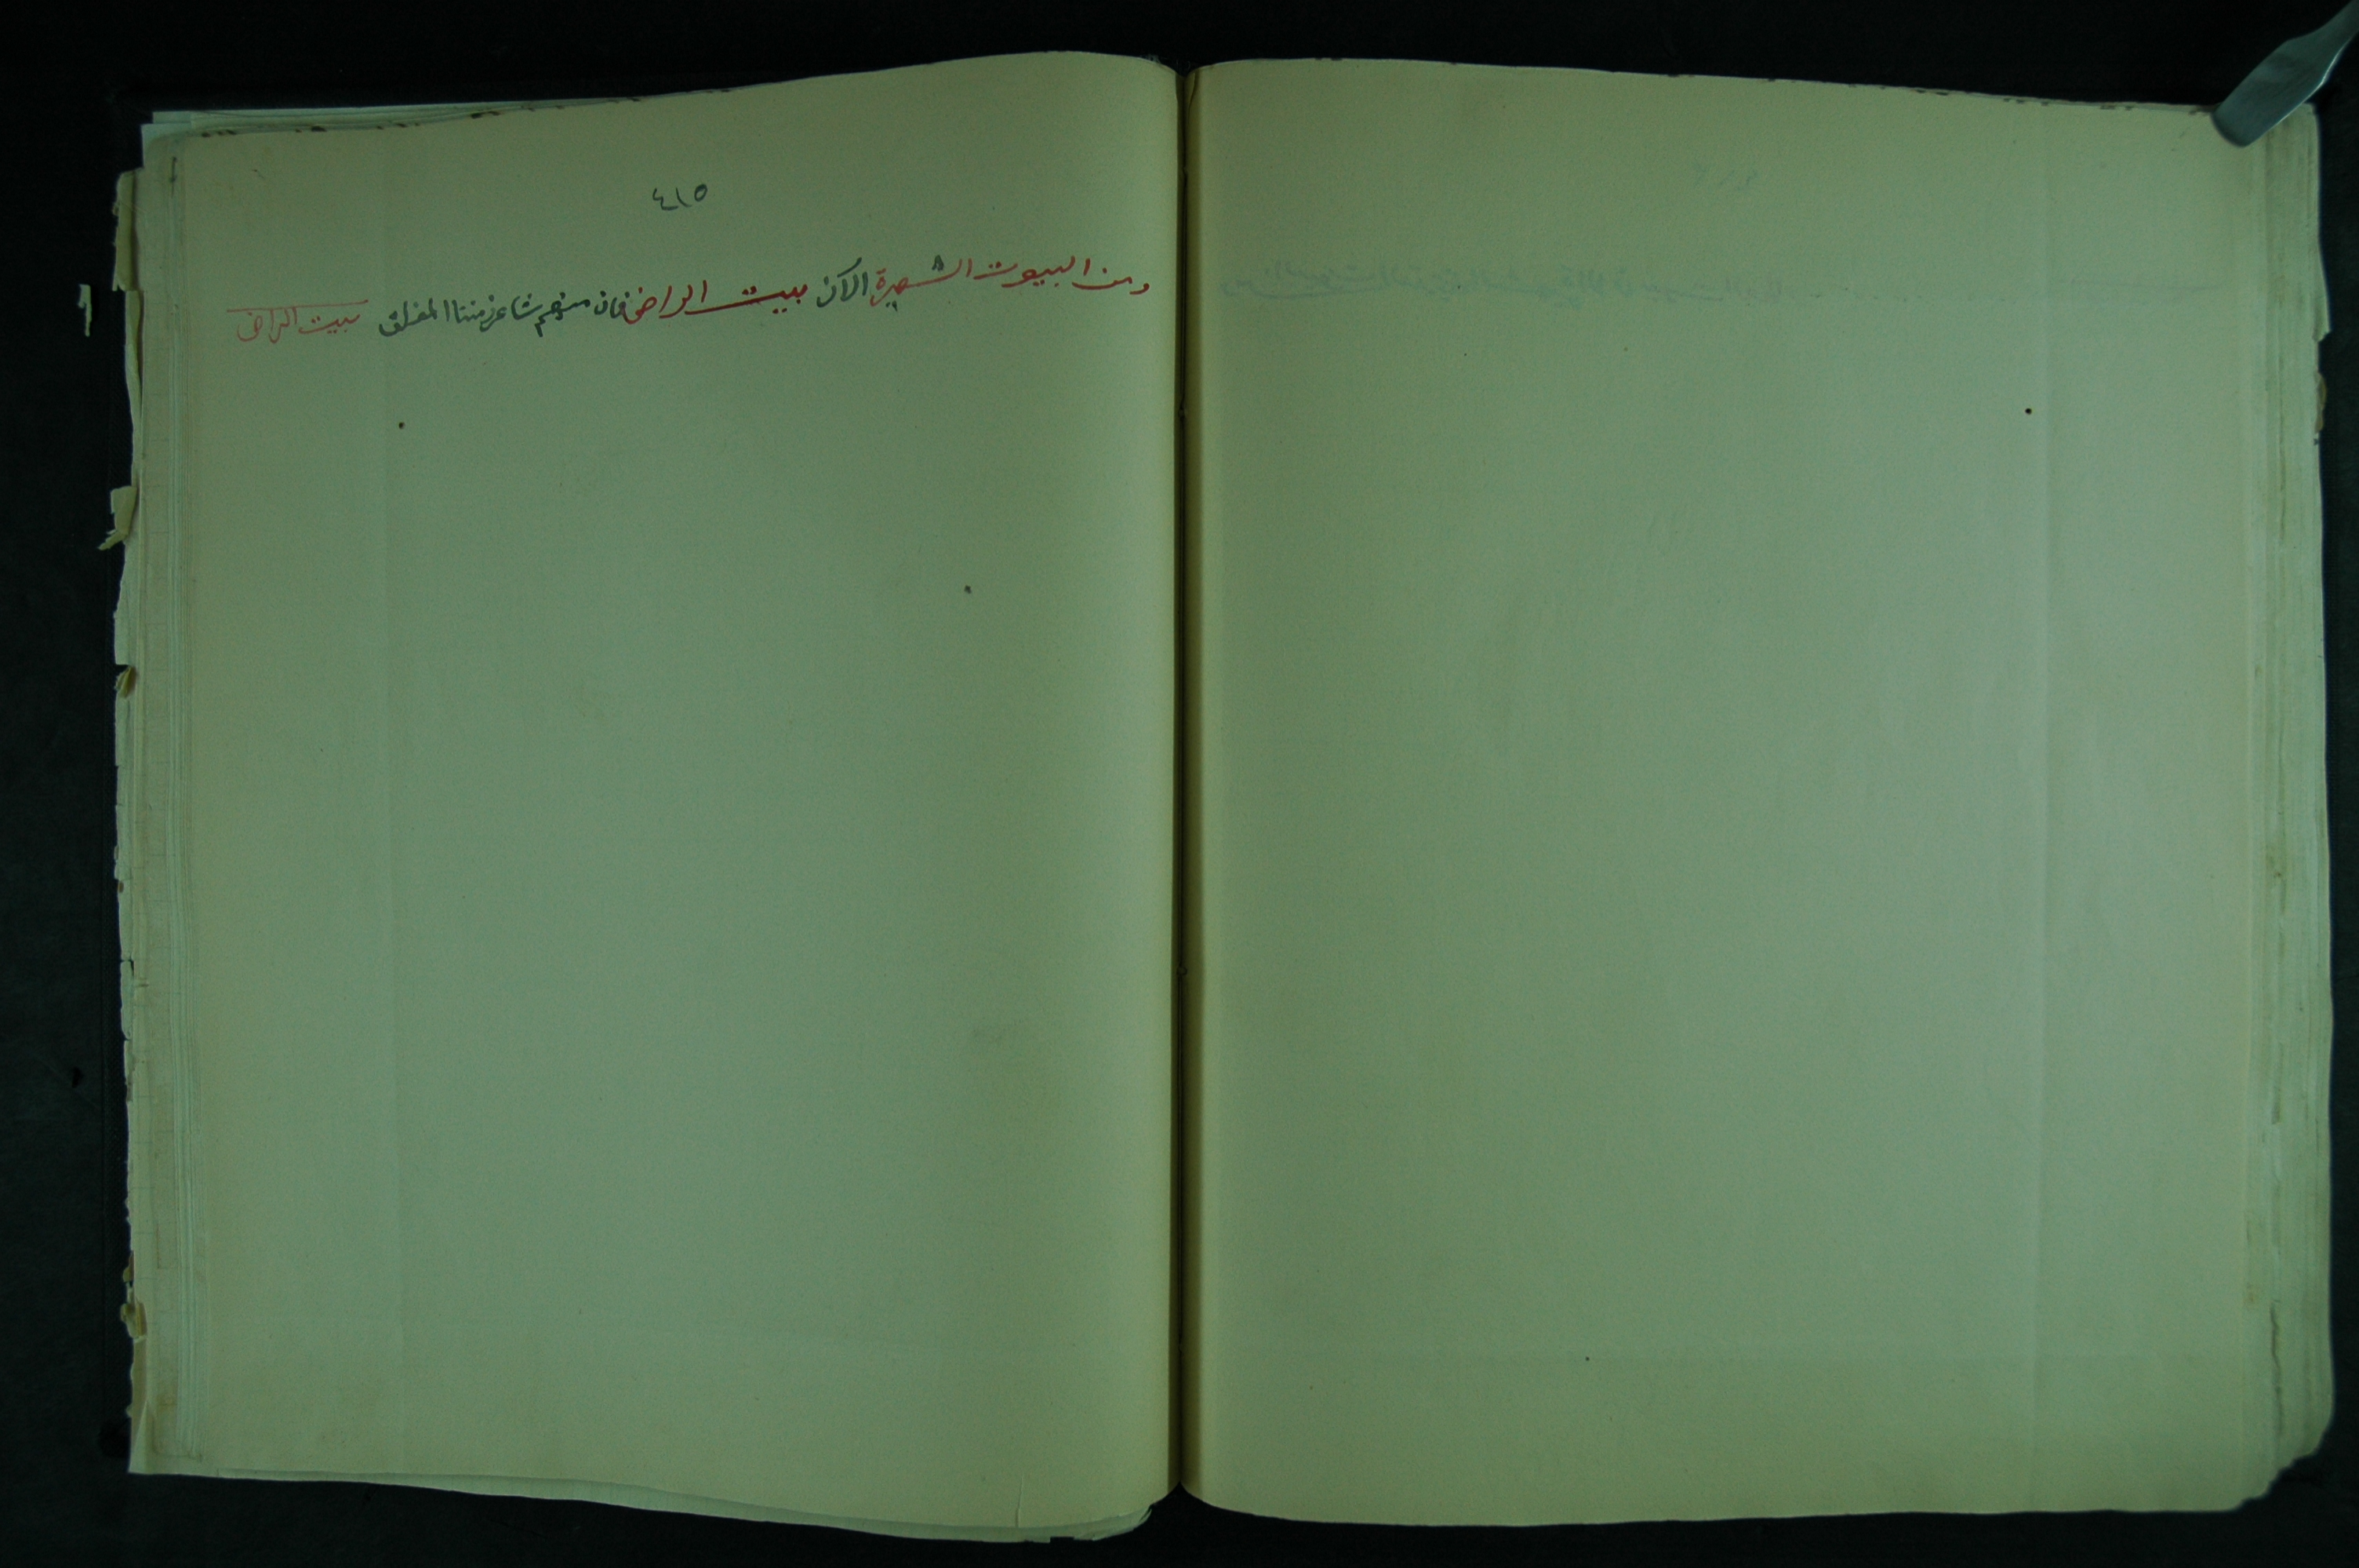 ٤١٥
ومن البيوت الشهيرة الآن بيت الراضي فان منهم شاعر زمننا المفلق
بيت الراضي